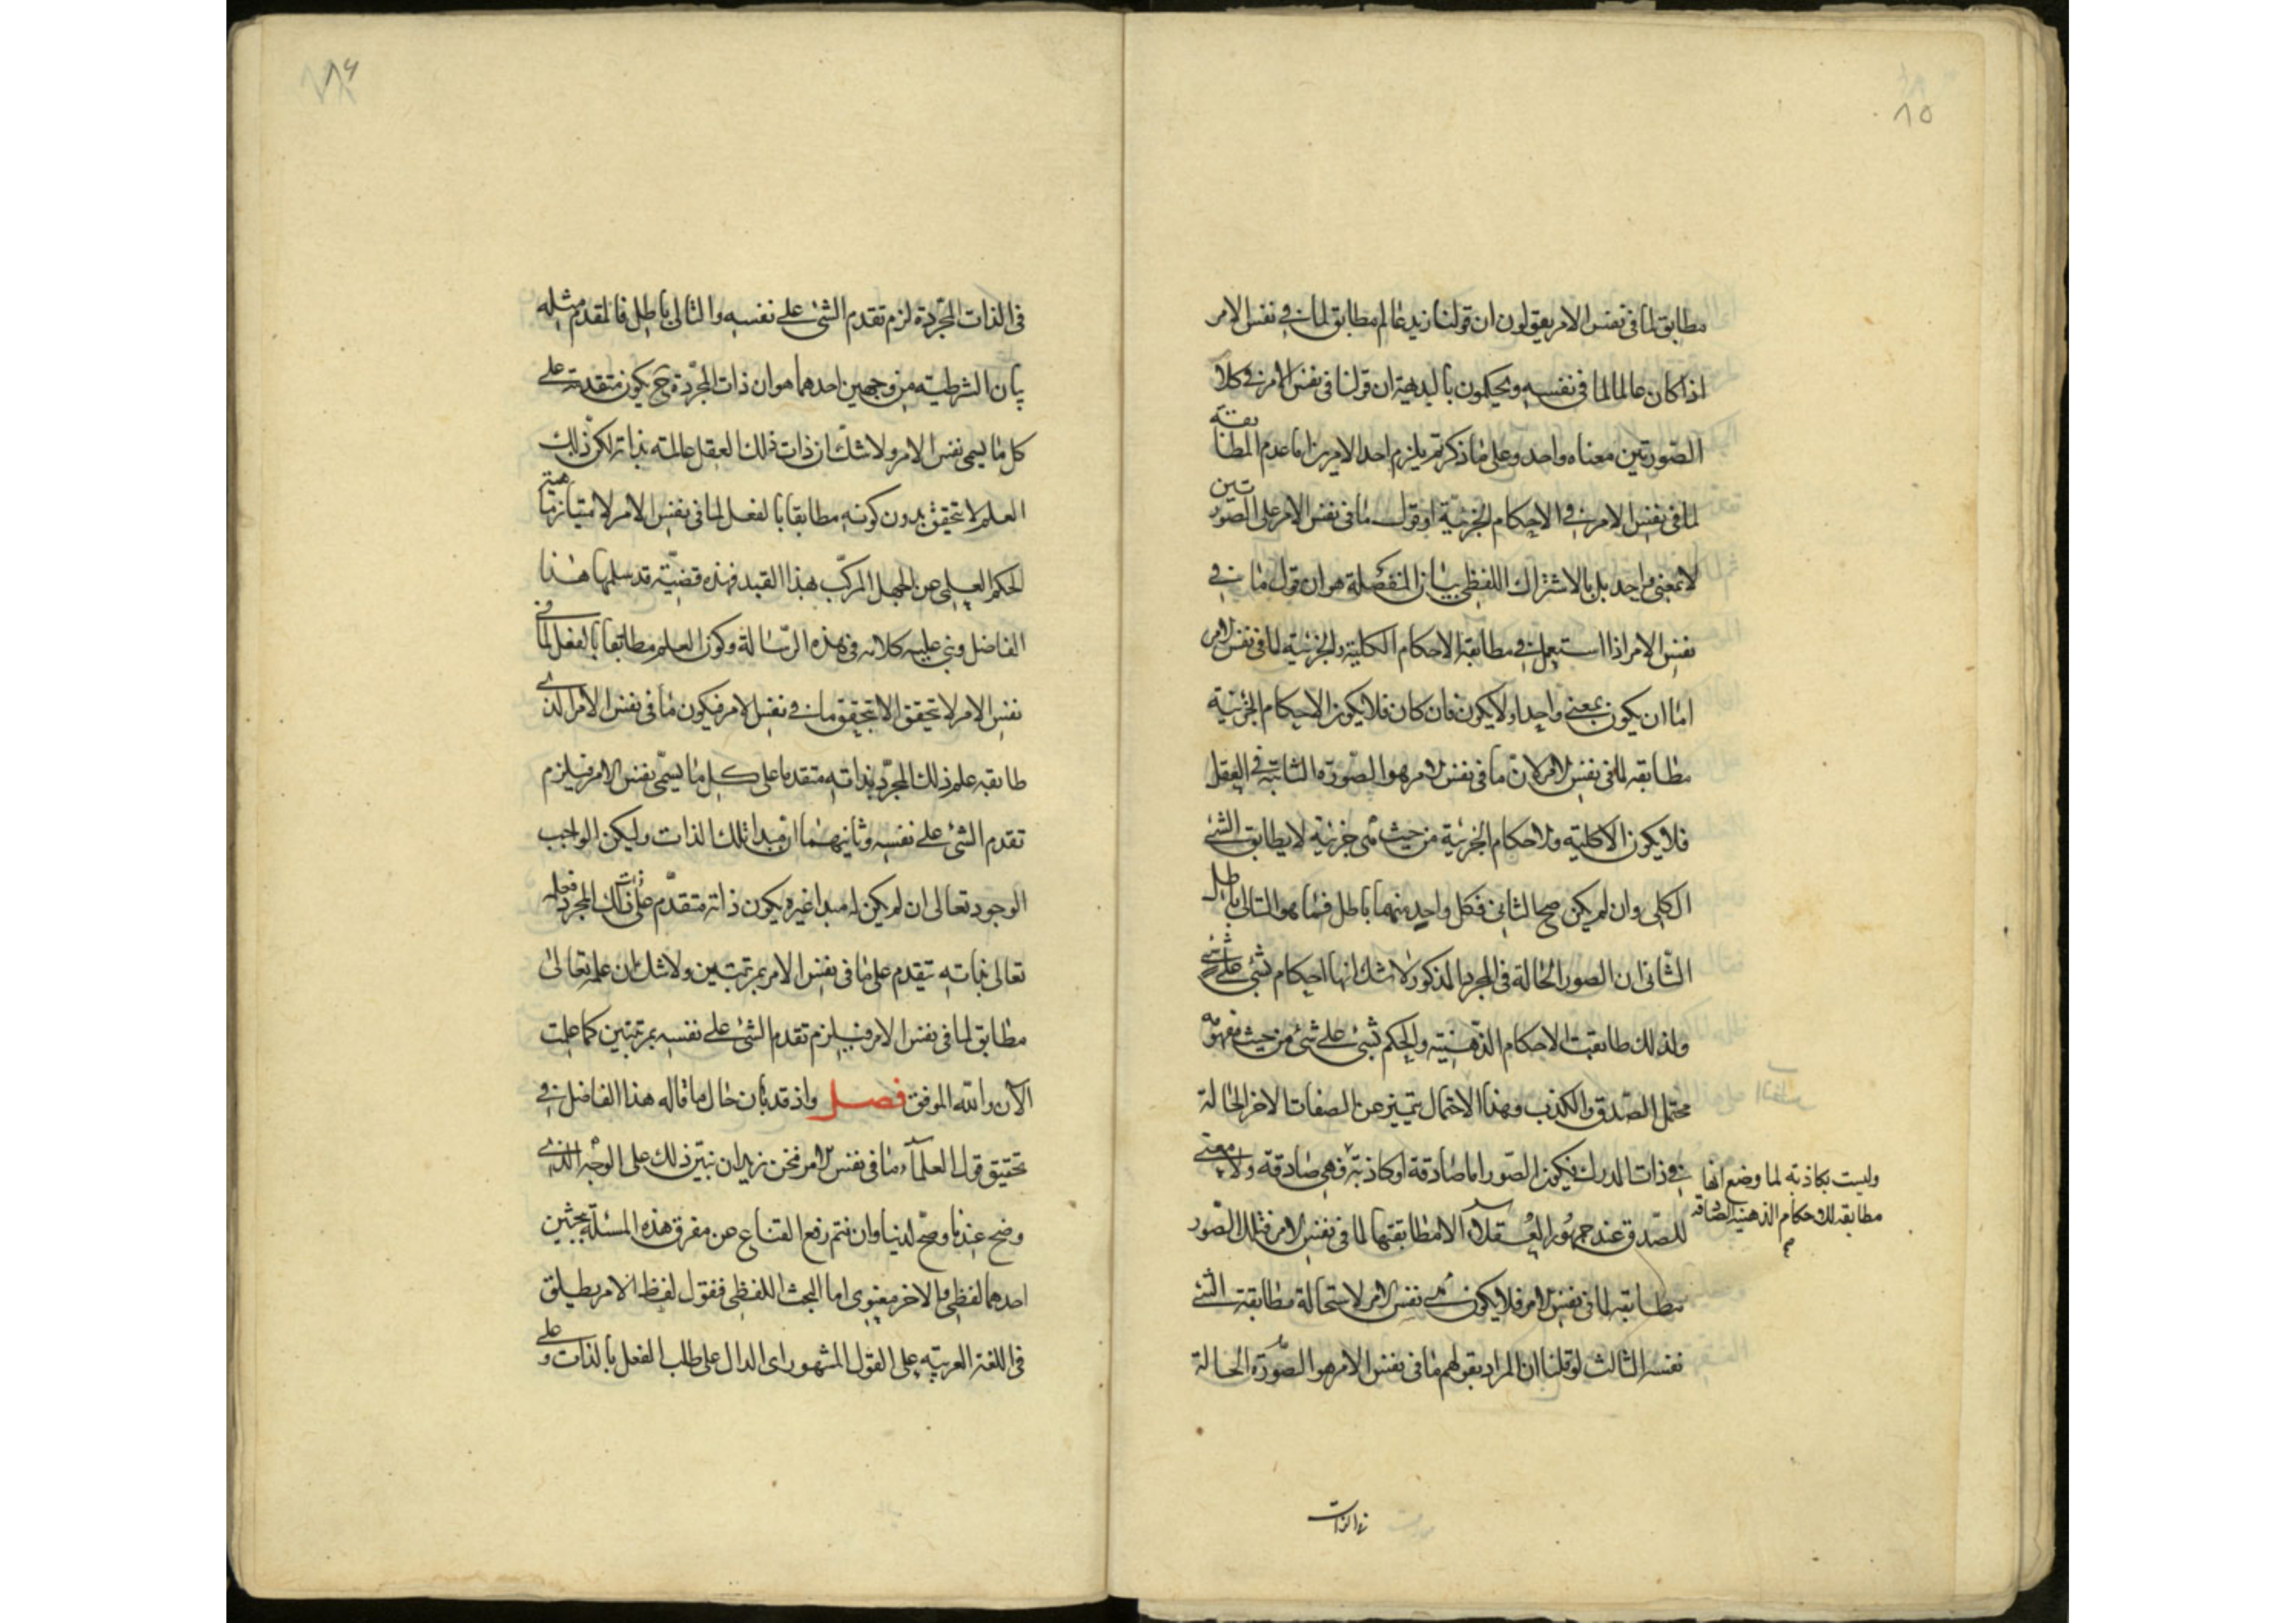 ٨٥
مطابق لما فى نفس الامر يقولون ان قولنا زيد عالم مطابق لما فى نفس الامر
اذا كان عالما لما فى نفسه ويحكمون بالبديهة ان قولنا فى نفس الامر فى كلا
الصورتين معناه واحد وعلى ما ذكرتم يلزم احد الامرين اما عدم المطابقة
لما فى نفس الامر فى الاحكام الجزئية او قول ما فى نفس الامر على الصورتين
لا بمعنى واحد بل بالاشتراك اللفظى بيان المنفصلة هو ان قول ما فى
نفس الامر اذا استعمل فى مطابقة الاحكام الكلية والجزئية لما فى نفس الامر
اما ان يكون بمعنى واحد او لا يكون فان كان فلا يكون الاحكام الجزئية
مطابقه لما فى نفس الامر لان ما فى نفس الامر هو الصورة الثابتة فى العقل
فلا يكون الا كلية والاحكام الجزئية من حيث هى جزئية لا يطابق الشئ
الكلى وان لم يكن صح الثانى فكل واحد منهما باطل فما هو التالى باطل
الثانى ان الصور الحالة فى المجرد المذكور لا شك انها احكام بشئ على شئ
ولذلك طابقت الاحكام الذهنية والحكم بشئ على شئ من حيث مفهومه
محتمل الصدق والكذب وهذا الاحتمال يتميز عن الصفات الاخر الحالة
فى ذات المدرك فيكون الصور اما صادقة او كاذبة فهى صادقة ولا معنى
وليست بكاذبة لما وضع انها
مطابقه للاحكام الذهنية الصادقة
للصدق عند جمهور العقلاء الا مطابقتها لما فى نفس الامر فتلك الصور
مطابقه لما فى نفس الامر فلا يكون هى نفس الامر لاستحالة مطابقة الشئ
نفسه الثالث لو قلنا ان المراد بقولهم ما فى نفس الامر هو الصورة الحالة
فى الذات
٨٦
فى الذات المجردة لزم تقدم الشئ على نفسه والتالى باطل فالمقدم مثله
بيان الشرطية من وجهين احدهما هو ان ذات المجردة ح يكون متقدمة على
كل ما يسمى نفس الامر ولا شك ان ذات ذلك العقل عالمة بذاته لكن ذلك
العلم لا يتحقق بدون كونه مطابقا بالفعل لما فى نفس الامر لامتياز ماهية
الحكم العلمى عن الجهل المركب بهذا القيد فهذه قضية قد سلمها هذا
الفاضل وبنى عليه كلامه فى هذه الرسالة وكون العلم مطابقا بالفعل لما فى
نفس الامر لا يتحقق الا بتحقق ما فى نفس الامر فيكون ما فى نفس الامر الذى
طابقه علم ذلك المجرد بذاته متقدما على كل ما يسمى نفس الامر فيلزم
تقدم الشئ على نفسه وثانيهما ان مبدا تلك الذات وليكن الواجب
الوجود تعالى ان لم يكن له مبدا غيره يكون ذاته متقدم على ذات ذلك المجرد فعلمه
تعالى بذاته يتقدم على ما فى نفس الامر بمرتبتين ولا شك ان علمه تعالى
مطابق لما فى نفس الامر فيلزم تقدم الشئ على نفسه بمرتبتين كما علمت
الآن والله الموفق فصل واذ قد بان حال ما قاله هذا الفاضل فى
تحقيق قول العلماء ما فى نفس الامر فنحن نريد ان نبين ذلك على الوجه الذى
وضح عندنا وصح لدينا وان نتم رفع القناع عن مفرق هذه المسئلة ببحثين
احدهما لفظى والاخر معنوى اما البحث اللفظى فنقول لفظ الامر يطلق
فى اللغة العربية على القول المشهور اى الدال على طلب الفعل بالذات وعلى